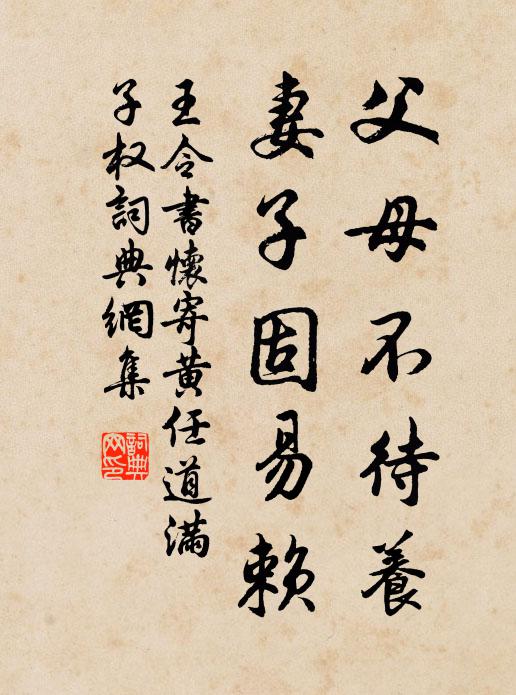 父母不待養
妻子固易賴
王令書懷寄黃任道滿
子权詞典網集
詞典
网印